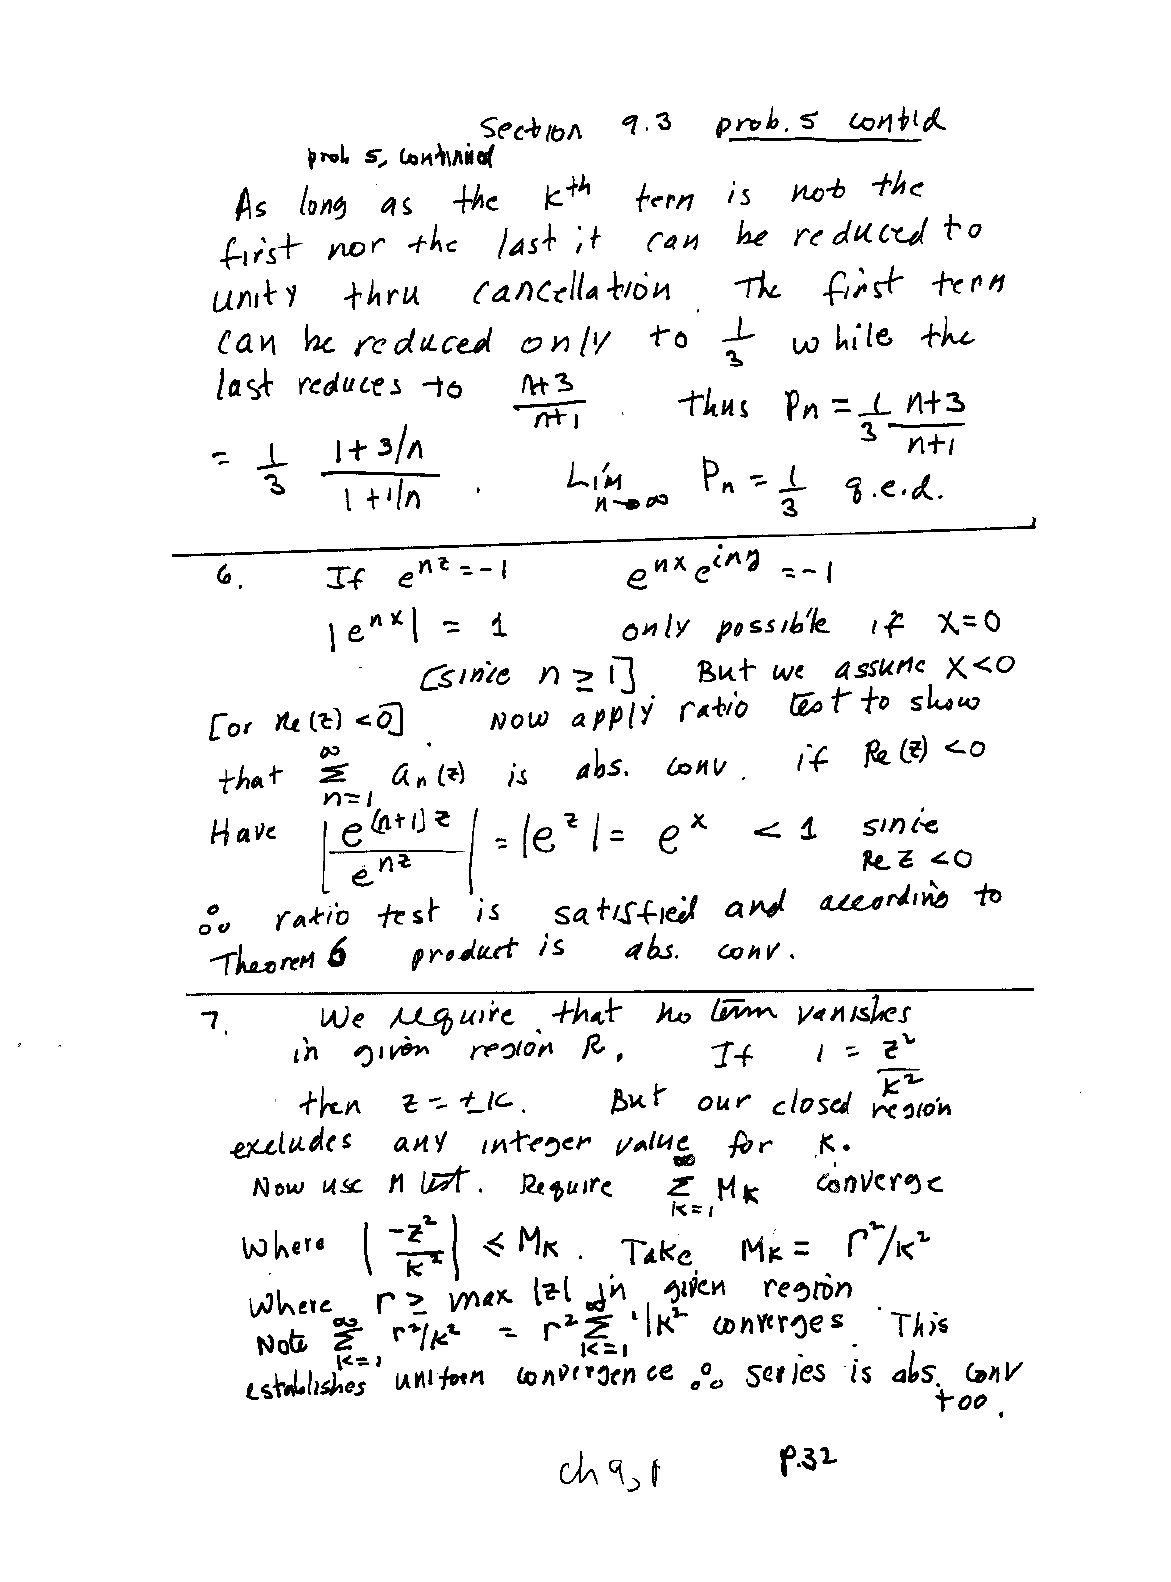 Section 9.3 prob. 5 cont'd
prob 5, continued
As long as the kth term is not the
first nor the last it can be reduced to
unity thru cancellation. The first term
can be reduced only to 1/3 while the
last reduces to (n+3)/(n+1). Thus Pn = 1/3 (n+3)/(n+1)
= 1/3 (1+3/n)/(1+1/n). Lim n→∞ Pn = 1/3 q.e.d.
6. If e^{nz} = -1 e^{nx} e^{iny} = -1
|e^{nx}| = 1 only possible if x=0
[since n ≥ 1] But we assume x<0
[or Re(z) <0]. Now apply ratio test to show
that Σ_{n=1}^∞ a_n(z) is abs. conv. if Re(z) <0
Have |e^{(n+1)z}/e^{nz}| = |e^z| = e^x < 1 since
Re z <0
∴ ratio test is satisfied and according to
Theorem 6 product is abs. conv.
7. We require that no term vanishes
in given region R. If 1 = z²/k²
then z = ±k. But our closed region
excludes any integer value for k.
Now use M test. Require Σ_{k=1}^∞ M_k converge
Where |-z²/k²| ≤ M_k. Take M_k = r²/k²
Where r ≥ max |z| in given region
Note Σ_{k=1}^∞ r²/k² = r² Σ_{k=1}^∞ 1/k² converges. This
establishes uniform convergence ∴ series is abs. conv
too.
ch 9,1 p.32